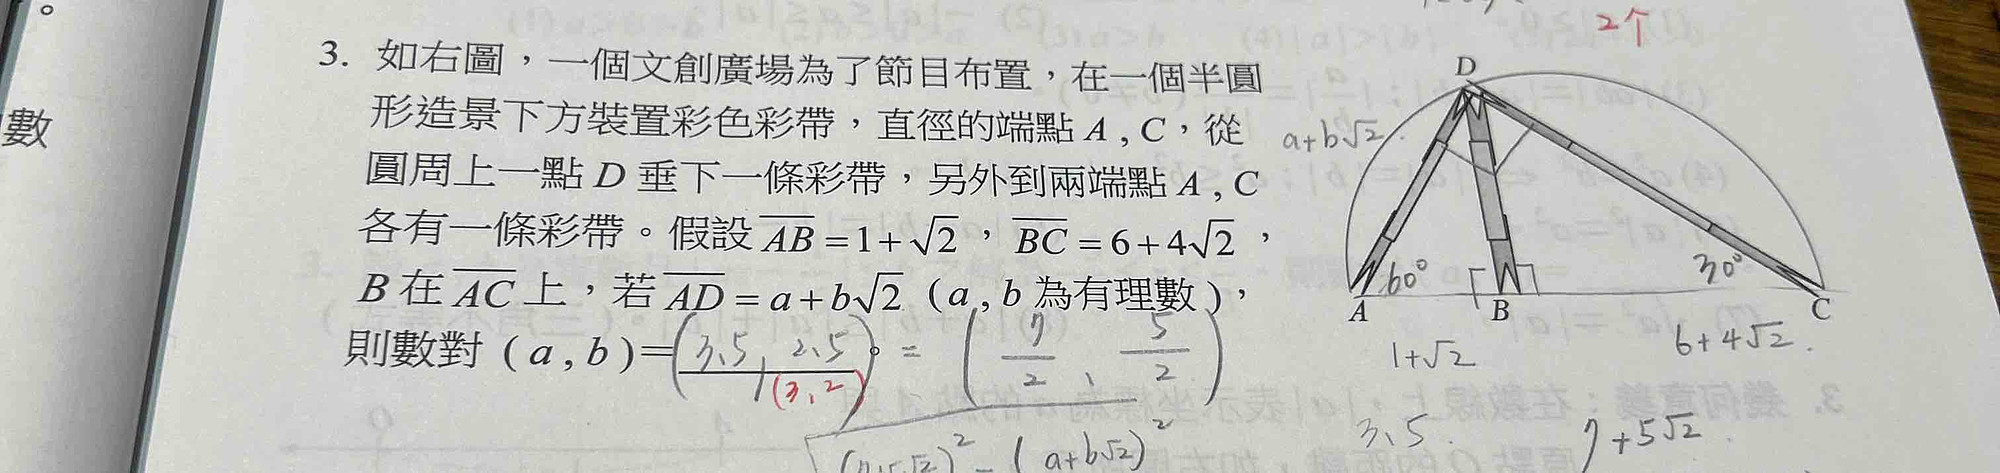 。
數
2个
3. 如右圖，一個文創廣場為了節目布置，在一個半圓
形造景下方裝置彩色彩帶，直徑的端點 A , C，從
圓周上一點 D 垂下一條彩帶，另外到兩端點 A , C
各有一條彩帶。假設 AB = 1+√2，BC = 6+4√2，
B 在 AC 上，若 AD = a+b√2（a , b 為有理數），
則數對 (a , b)=(3.5, 2.5)。= (7/2, 5/2)
(3, 2)
D
a+b√2.
60°
30°
A
B
C
1+√2
6+4√2.
3.5.
7+5√2
(a+b√2)²